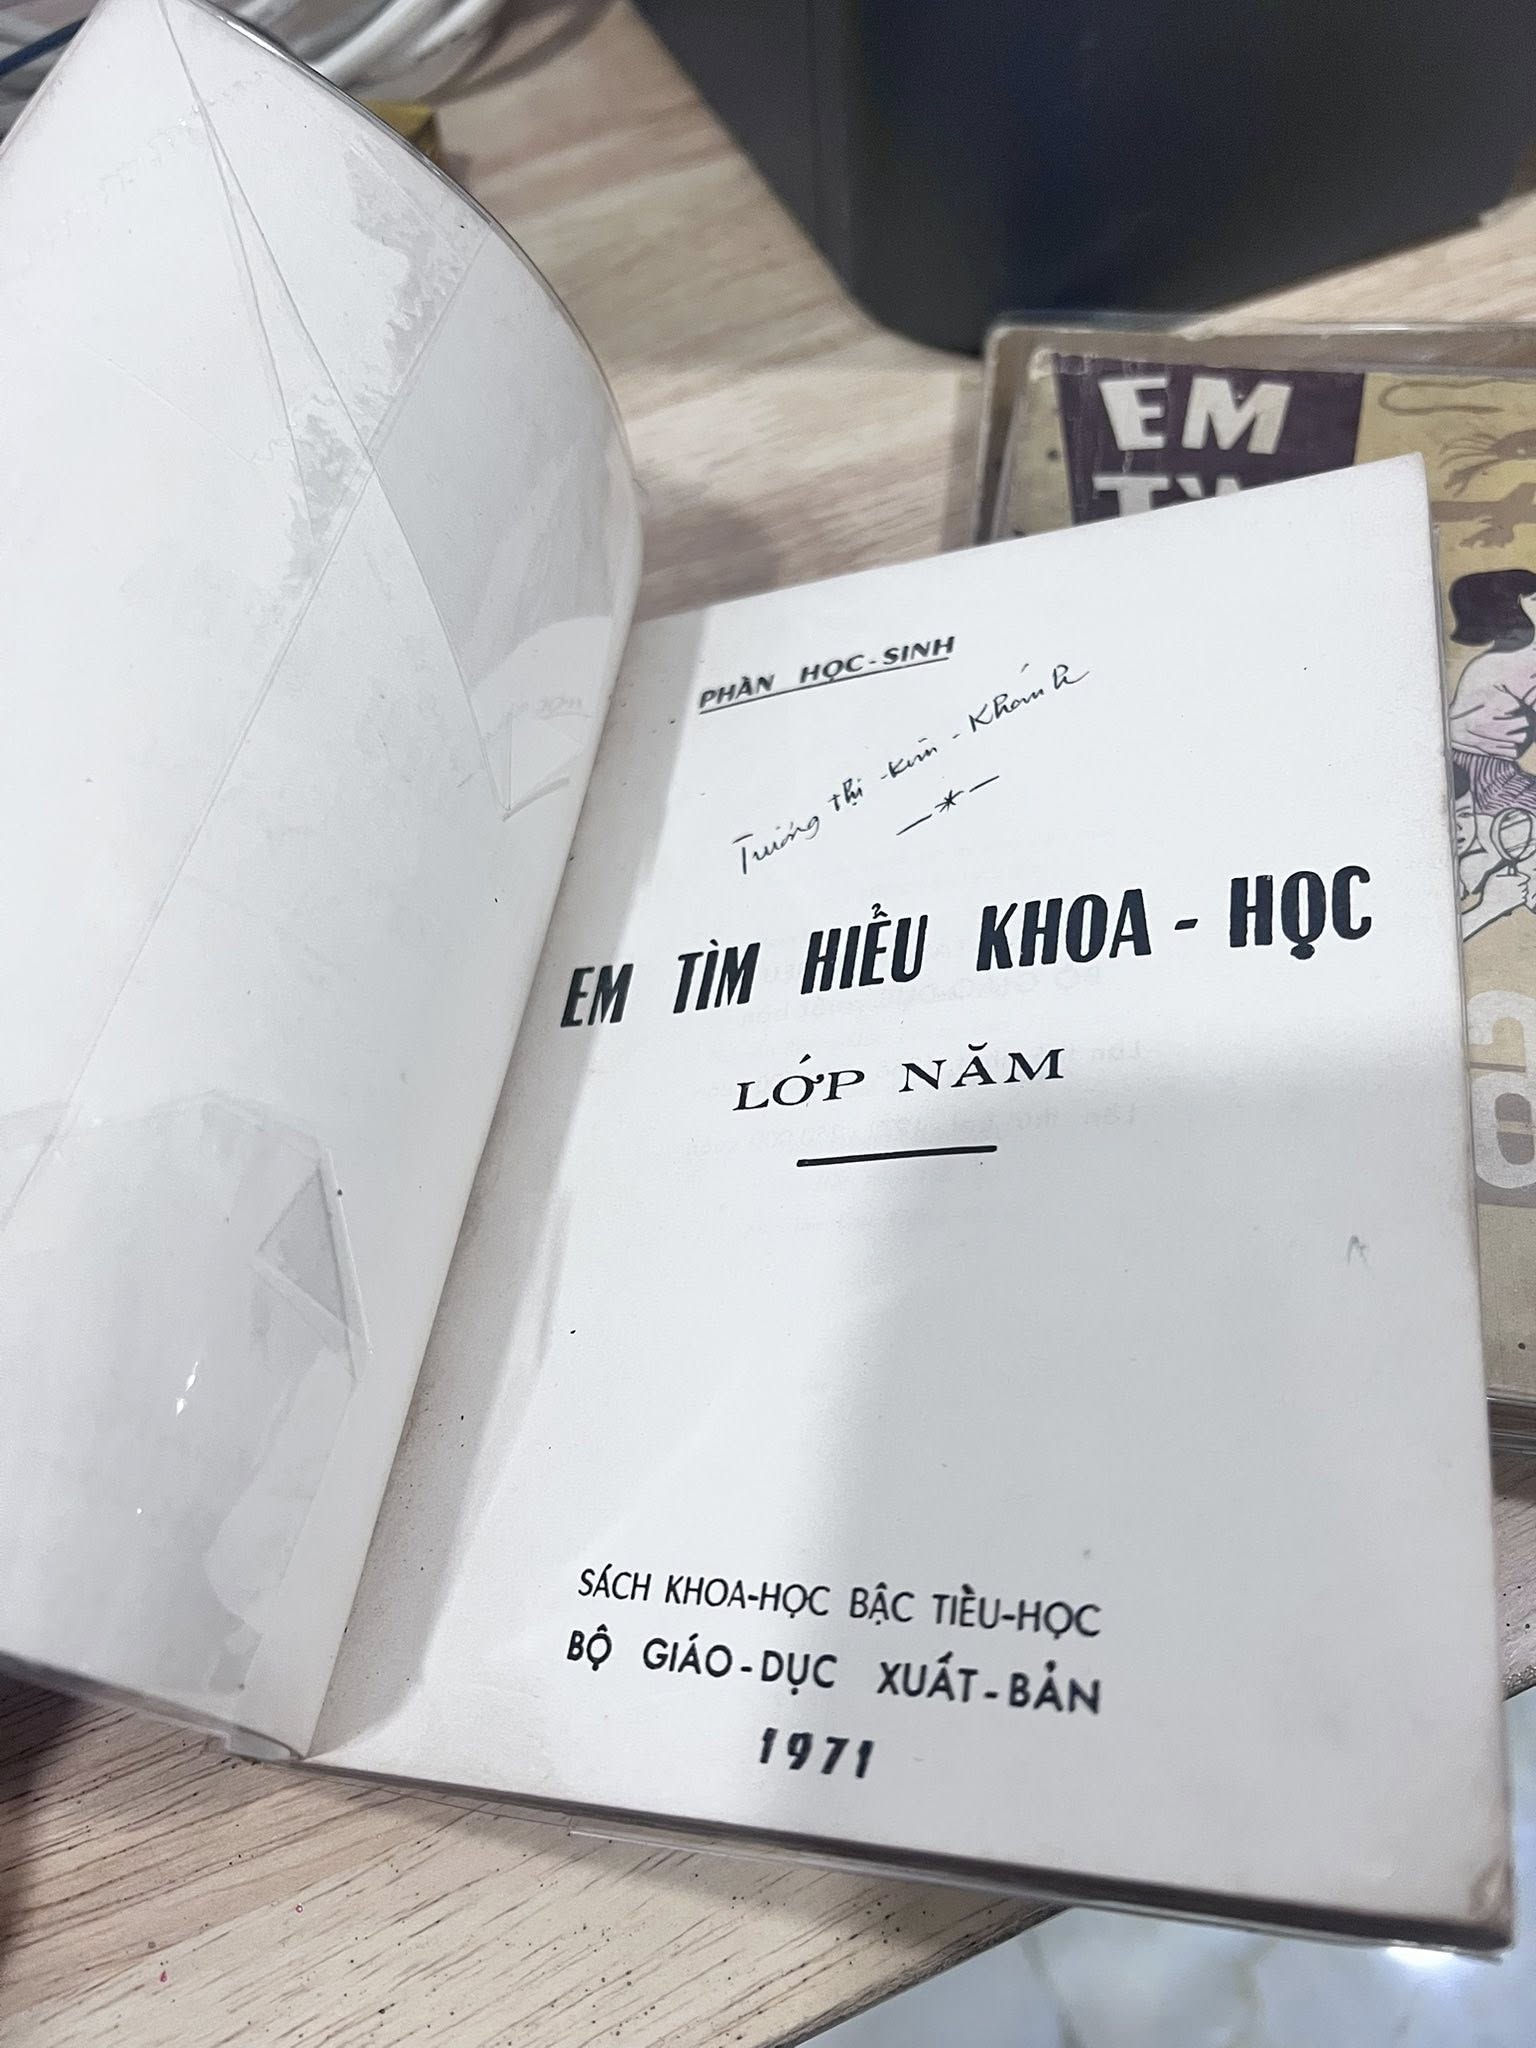 PHẦN HỌC-SINH
Trương Thị-Kim-Khánh
—*—
EM TÌM HIỂU KHOA-HỌC
LỚP NĂM
SÁCH KHOA-HỌC BẬC TIỂU-HỌC
BỘ GIÁO-DỤC XUẤT-BẢN
1971
EM